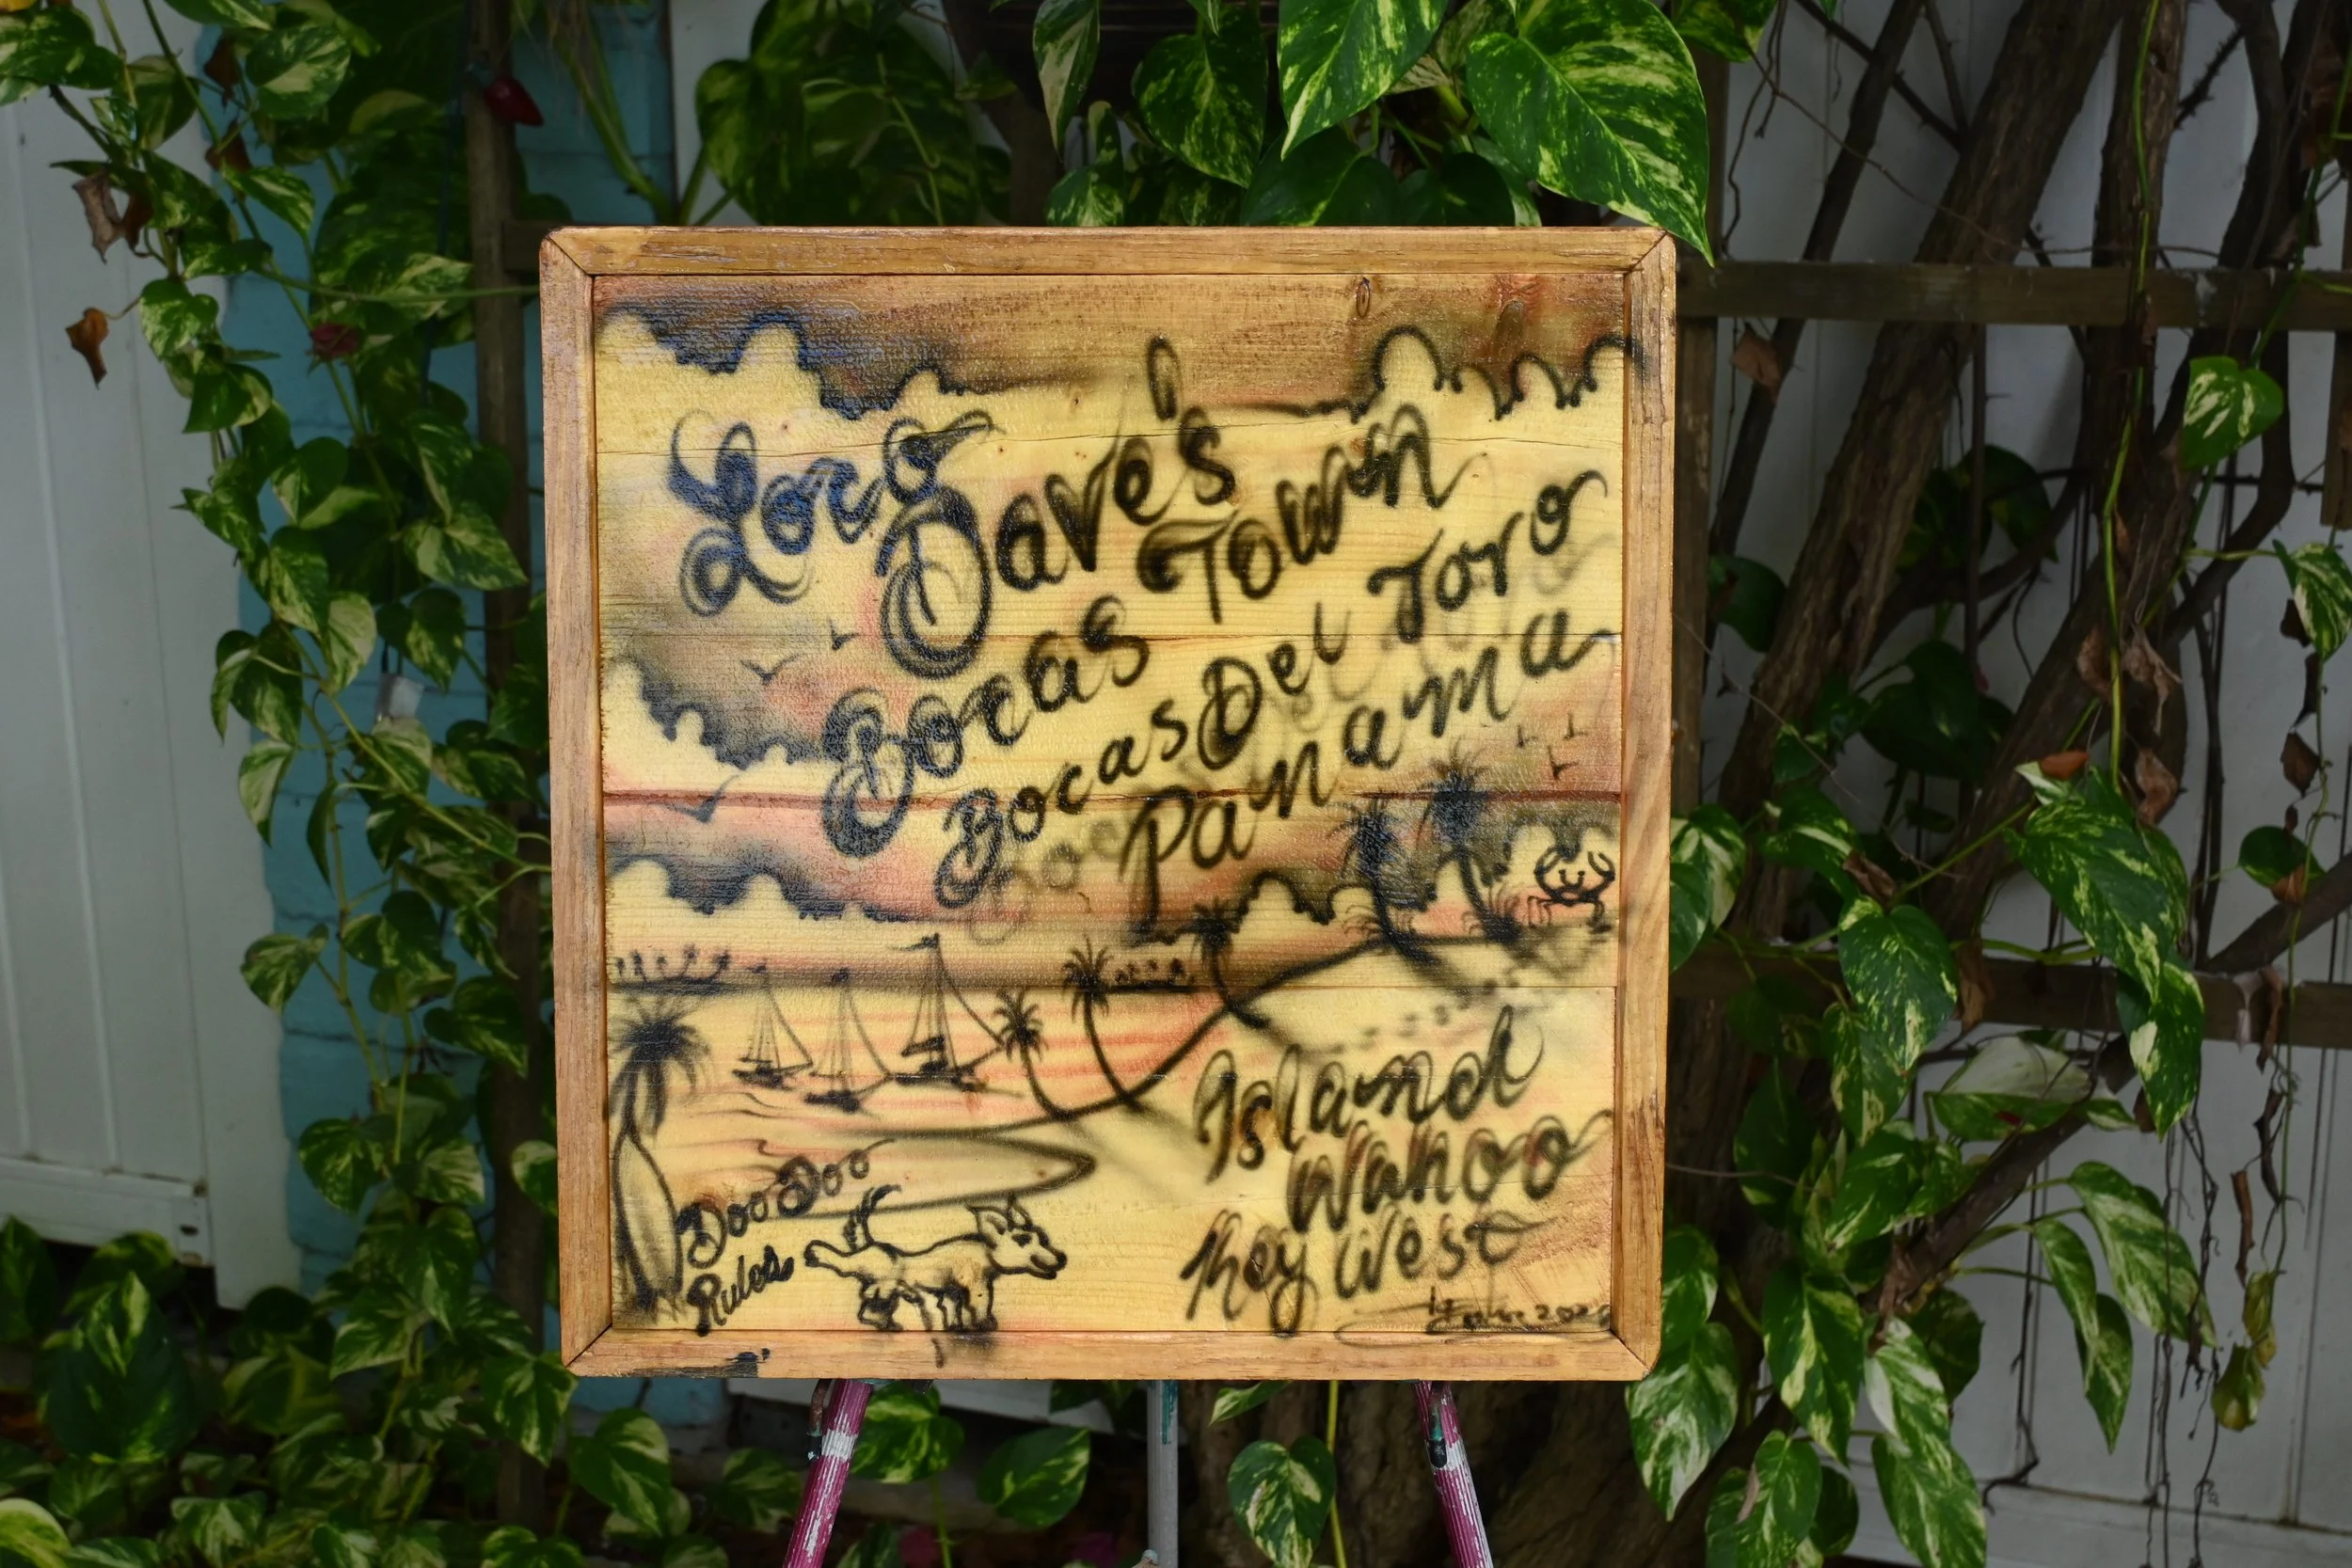 Loco Dave's
Bocas Town
Bocas Del Toro
Panama
Island
Wahoo
Key West
Doo Doo
Rules